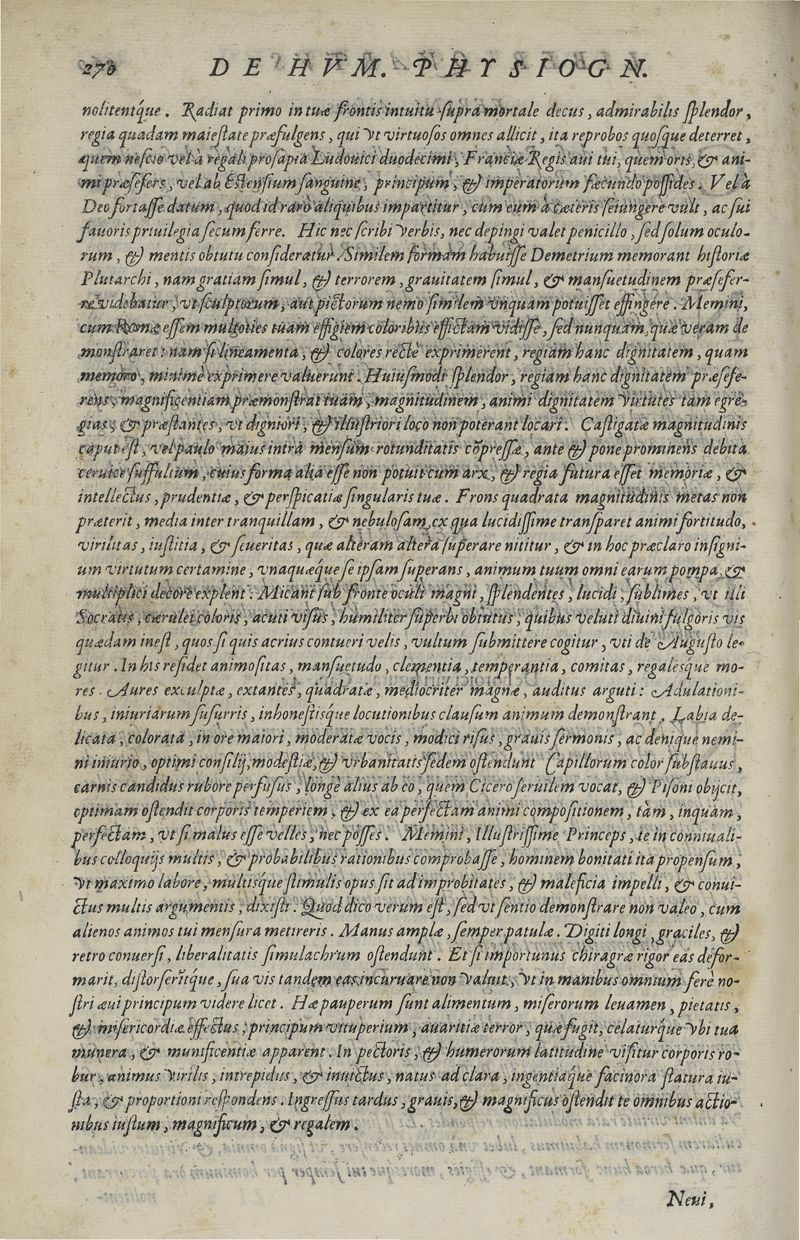 270 DE HVM. PHYSIOGN.
nolitentq́ue. Radiat primo in tuæ frontis intuitu supra mortale decus, admirabilis splendor,
regia quadam maiestate præfulgens, qui vt virtuosos omnes allicit, ita reprobos quosque deterret,
quem nescio vel à regali prosapia Ludouici duodecimi, Franciæ Regis aui tui, quem oris, & ani-
mi præsefers, vel ab Estensium sanguine, principum, & imperatorum fæcundo possides. Vel à
Deo fortasse datum, quod id raro aliquibus impartitur, cum eum à cæteris seiungere vult, ac sui
fauoris priuilegia secum ferre. Hic nec scribi verbis, nec depingi valet penicillo, sed solum oculo-
rum, & mentis obtutu consideratur. Similem formam habuisse Demetrium memorant historiæ
Plutarchi, nam gratiam simul, & terrorem, grauitatem simul, & mansuetudinem præsefer-
re videbatur, vt sculptorum, aut pictorum nemo similem vnquam potuisset effingere. Memini,
cum Romæ essem multoties tuam effigiem coloribus effictam vidisse, sed nunquam, quæ veram de
monstraret: nam si lineamenta, & colores recte exprimerent, regiam hanc dignitatem, quam
memoro, minimè exprimere valuerunt. Huiusmodi splendor, regiam hanc dignitatem præsefe-
rens, magnificentiam præmonstrat tuam, magnitudinem, animi dignitatem virtutes tam egre-
gias, & præstantes, vt digniori, & illustriori loco non poterant locari. Castigatæ magnitudinis
caput est, vel paulo maius intra mensum rotunditatis cōpressæ, ante & pone prominens debita
ceruice suffultum, cuius forma alia esse non potuit cum arx, & regia futura esset memoriæ, &
intellectus, prudentiæ, & perspicatiæ singularis tuæ. Frons quadrata magnitudinis metas non
præterit, media inter tranquillam, & nebulosam, ex qua lucidissime transparet animi fortitudo,
virilitas, iustitia, & seueritas, quæ alteram altera superare nititur, & in hoc præclaro insigni-
um virtutum certamine, vnaquæque se ipsam superans, animum tuum omni earum pompa, &
multiplici decore explent. Micant sub fronte oculi magni, splendentes, lucidi, sublimes, vt illi
Socratis, cærulei coloris, acuti visus, humiliter superbi obtutus, quibus veluti diuini fulgoris vis
quædam inest, quos si quis acrius contueri velis, vultum submittere cogitur, vti de Augusto le-
gitur. In his residet animositas, mansuetudo, clementia, temperantia, comitas, regalesque mo-
res. Aures exculptæ, extantes, quadratæ, mediocriter magnæ, auditus arguti: Adulationi-
bus, iniuriarum susurris, inhonestisque locutionibus clausum animum demonstrant. Labia de-
licata, colorata, in ore maiori, moderatæ vocis, modici risus, grauis sermonis, ac denique nemi-
ni iniurio, optimi consilij, modestiæ, & vrbanitatis sedem ostendunt Capillorum color subflauus,
carnis candidus rubore perfusus, longè alius ab eo, quem Cicero seruilem vocat, & Pisoni obijcit,
optimam ostendit corporis temperiem, & ex ea perfectam animi compositionem, tàm, inquam,
perfectam, vt si malus esse velles, nec posses. Memini, Illustrissime Princeps, te in conniuali-
bus colloquijs multis, & probabilibus rationibus comprobasse, hominem bonitati ita propensum,
vt maximo labore, multisque stimulis opus sit ad improbitates, & maleficia impelli, & conui-
ctus multis argumentis, dixisti. Quod dico verum est, sed vt sentio demonstrare non valeo, cum
alienos animos tui mensura metireris. Manus amplæ, semper patulæ. Digiti longi, graciles, &
retro conuersi, liberalitatis simulachrum ostendunt. Et si importunus chiragræ rigor eas defor-
marit, distorseritque, sua vis tandem eas incuruare non valuit, vt in manibus omnium ferè no-
stri æui principum videre licet. Hæ pauperum sunt alimentum, miserorum leuamen, pietatis,
& misericordiæ effectus; principum vituperium, auaritiæ terror, quæ fugit, celaturque vbi tua
munera, & munificentiæ apparent. In pectoris, & humerorum latitudine visitur corporis ro-
bur, animus virilis, intrepidus, & inuictus, natus ad clara, ingentiaque facinora statura iu-
sta, & proportioni respondens. Ingressus tardus, grauis, & magnificus ostendit te omnibus actio-
nibus iustum, magnificum, & regalem.
Neui,